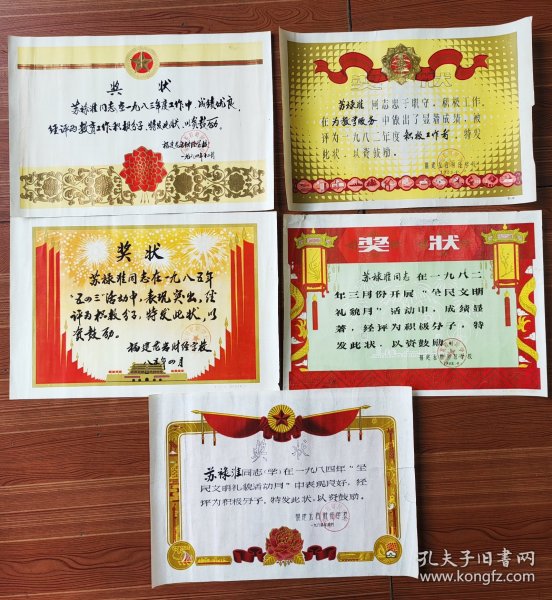 奖状
苏禄淮同志在一九八三年度工作中，成绩优良，
经评为教育工作积极分子，特发此状，以资鼓励。
福建龙岩财经学校
一九八四年一月
奖状
苏禄淮同志忠于职守，积极工作，
在为教学服务中做出了显著成绩，被
评为一九八二年度积极工作者，特发
此状，以资鼓励。
奖状
苏禄淮同志在一九八五年
“五四三”活动中，表现突出，经
评为积极分子，特发此状，以
资鼓励。
福建龙岩财经学校
八五年四月
奖状
苏禄淮同志在一九八二
年三月份开展“全民文明
礼貌月”活动中，成绩显
著，经评为积极分子，特
发此状，以资鼓励。
奖状
苏禄淮同志(学)在一九八四年“全
民文明礼貌活动月”中表现良好，经
评为积极分子，特发此状，以资鼓励。
孔夫子旧书网
www.kongfz.com